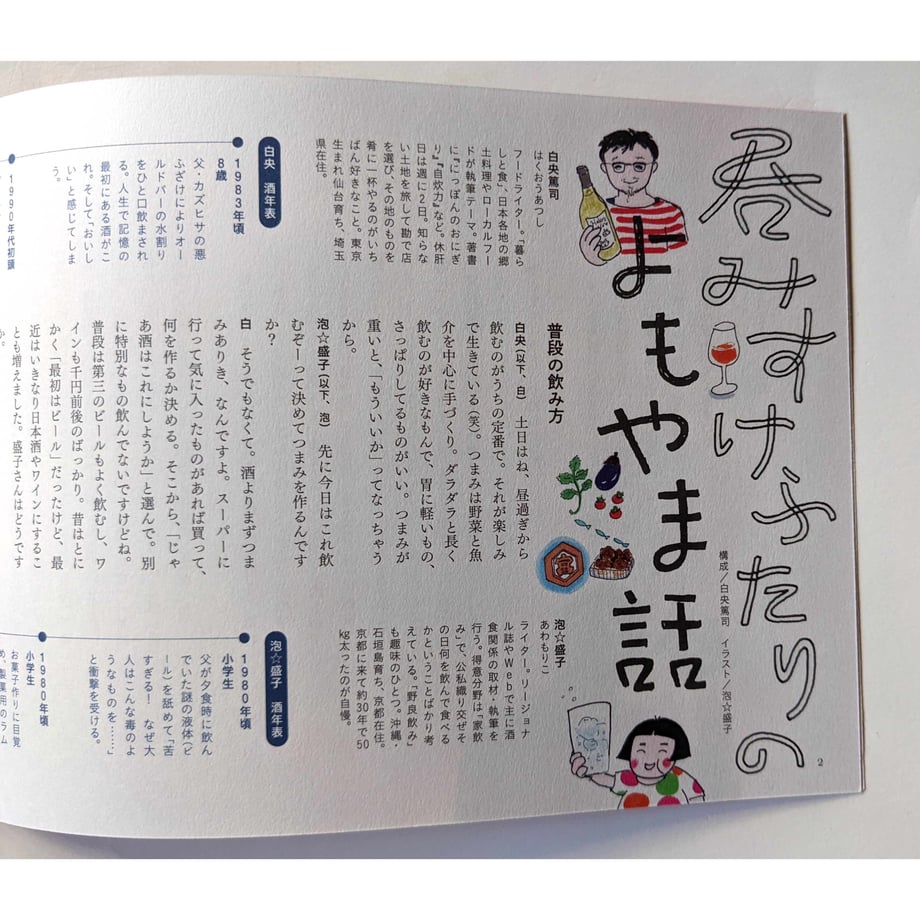 呑みすけふたりの
よもやま話
構成／白央篤司　イラスト／泡☆盛子
2
白央篤司
はくおうあつし
フードライター。「暮ら
しと食」、日本各地の郷
土料理やローカルフー
ドが執筆テーマ。著書
に『にっぽんのおにぎ
り』『自炊力』など。休肝
日は週に2日。知らな
い土地を旅して勘で店
を選び、その地のものを
肴に一杯やるのがいち
ばん好きなこと。東京
生まれ仙台育ち、埼玉
県在住。
白央　酒年表
1983年頃
8歳
父・カズヒサの悪
ふざけによりオー
ルドパーの水割り
をひと口飲まされ
る。人生で記憶の
最初にある酒がこ
れ。そして、おいし
い」と感じてしま
う。
1990年代初頭
普段の飲み方
白央（以下、白）　土日はね、昼過ぎから
飲むのがうちの定番で。それが楽しみ
で生きている（笑）。つまみは野菜と魚
介を中心に手づくり。ダラダラと長く
飲むのが好きなもんで、胃に軽いもの、
さっぱりしてるものがいい。つまみが
重いと、「もういいか」ってなっちゃう
から。
泡☆盛子（以下、泡）　先に今日はこれ飲
むぞーって決めてつまみを作るんです
か？
白　そうでもなくて。酒よりまずつま
みありき、なんですよ。スーパーに
行って気に入ったものがあれば買って、
何を作るか決める。そこから、「じゃ
あ酒はこれにしようか」と選んで。別
に特別なもの飲んでないですけどね。
普段は第三のビールもよく飲むし、ワ
インも千円前後のばっかり。昔はとに
かく「最初はビール」だったけど、最
近はいきなり日本酒やワインにするこ
とも増えました。盛子さんはどうです
か。
泡☆盛子
あわもりこ
ライター。リージョナ
ル誌やWebで主に酒
食関係の取材・執筆を
行う。得意分野は「家飲
み」で、公私織り交ぜそ
の日何を飲んで食べる
かということばかり考
えている。「野良飲み」
も趣味のひとつ。沖縄・
石垣島育ち、京都在住。
京都に来て約30年で50
kg太ったのが自慢。
泡☆盛子　酒年表
1980年頃
小学生
父が夕食時に飲ん
でいた謎の液体（ビ
ール）を舐めて「苦
すぎる！　なぜ大
人はこんな毒のよ
うなものを……」
と衝撃を受ける。
1980年頃
小学生
お菓子作りに目覚
め、製菓用のラム